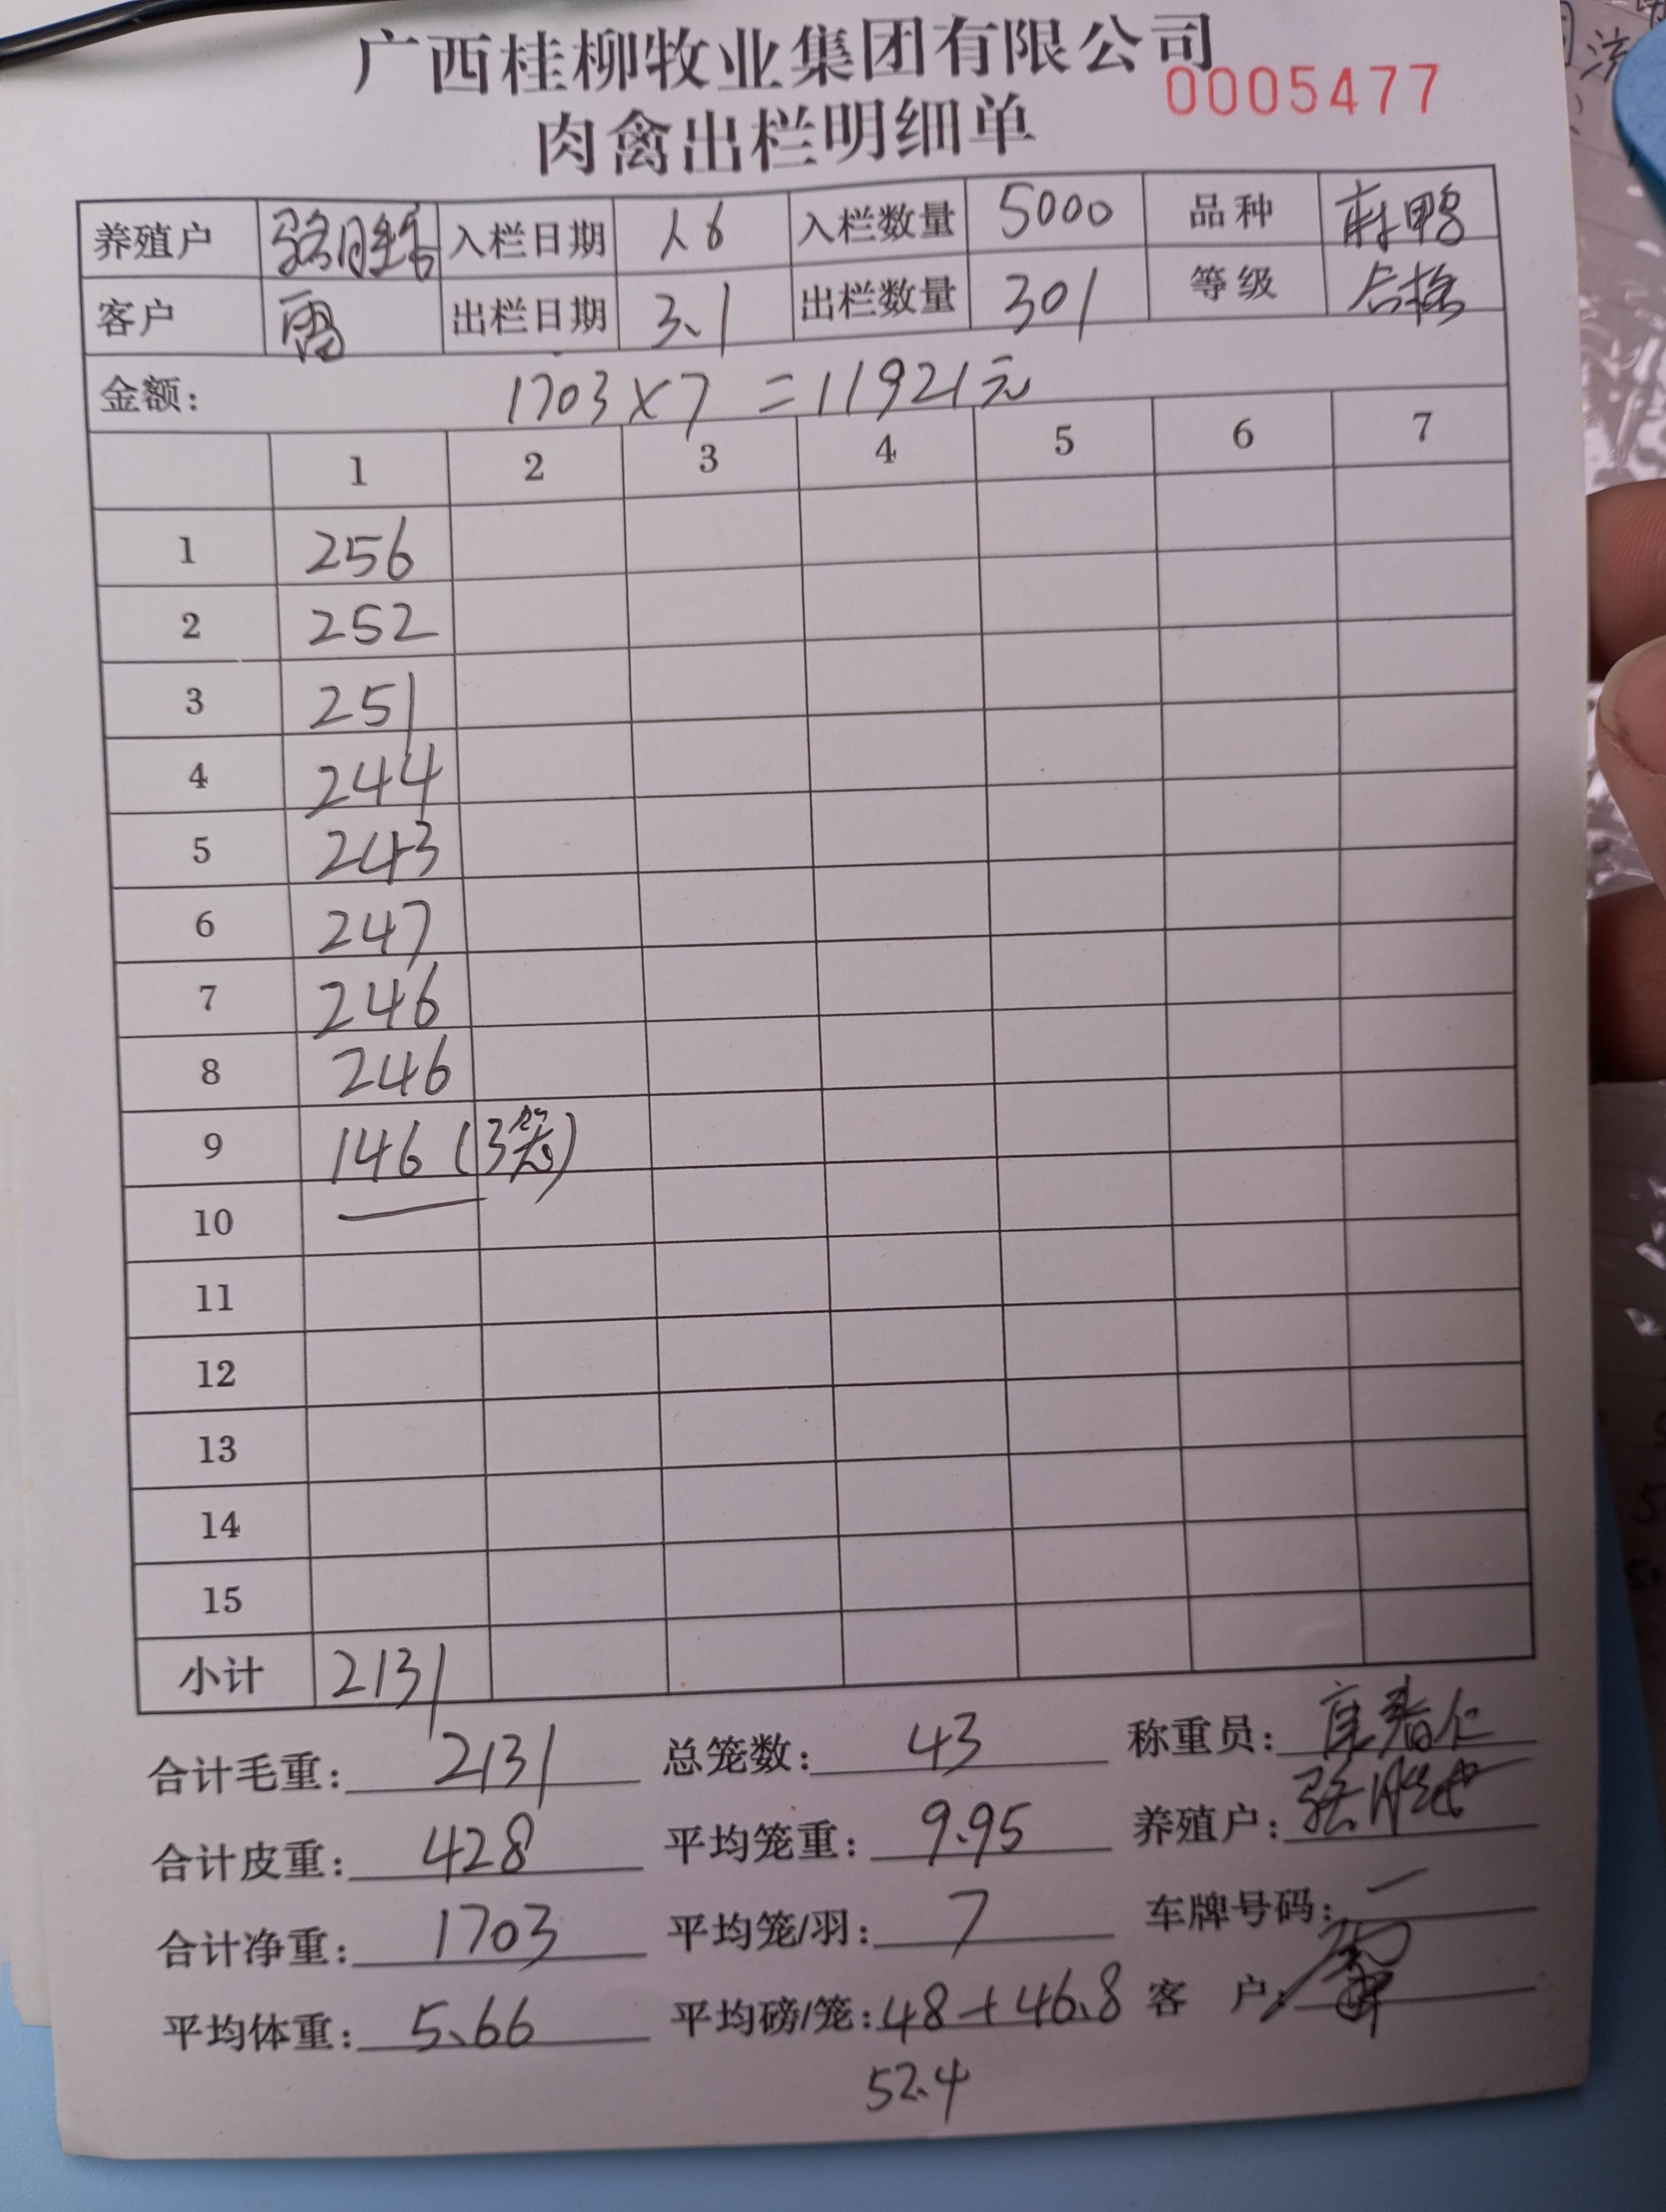 广西桂柳牧业集团有限公司
0005477
肉禽出栏明细单
养殖户 入栏日期 入栏数量 5000 品种 麻鸭
客户 雷 出栏日期 3.1 出栏数量 301 等级 合格
金额: 1703×7=11921元
1 2 3 4 5 6 7
1 256
2 252
3 251
4 244
5 243
6 247
7 246
8 246
9 146(3笼)
10
11
12
13
14
15
小计 2131
合计毛重: 2131 总笼数: 43 称重员:
合计皮重: 428 平均笼重: 9.95 养殖户:
合计净重: 1703 平均笼/羽: 7 车牌号码: 一
平均体重: 5.66 平均磅/笼: 48+46.8 客 户:
52.4